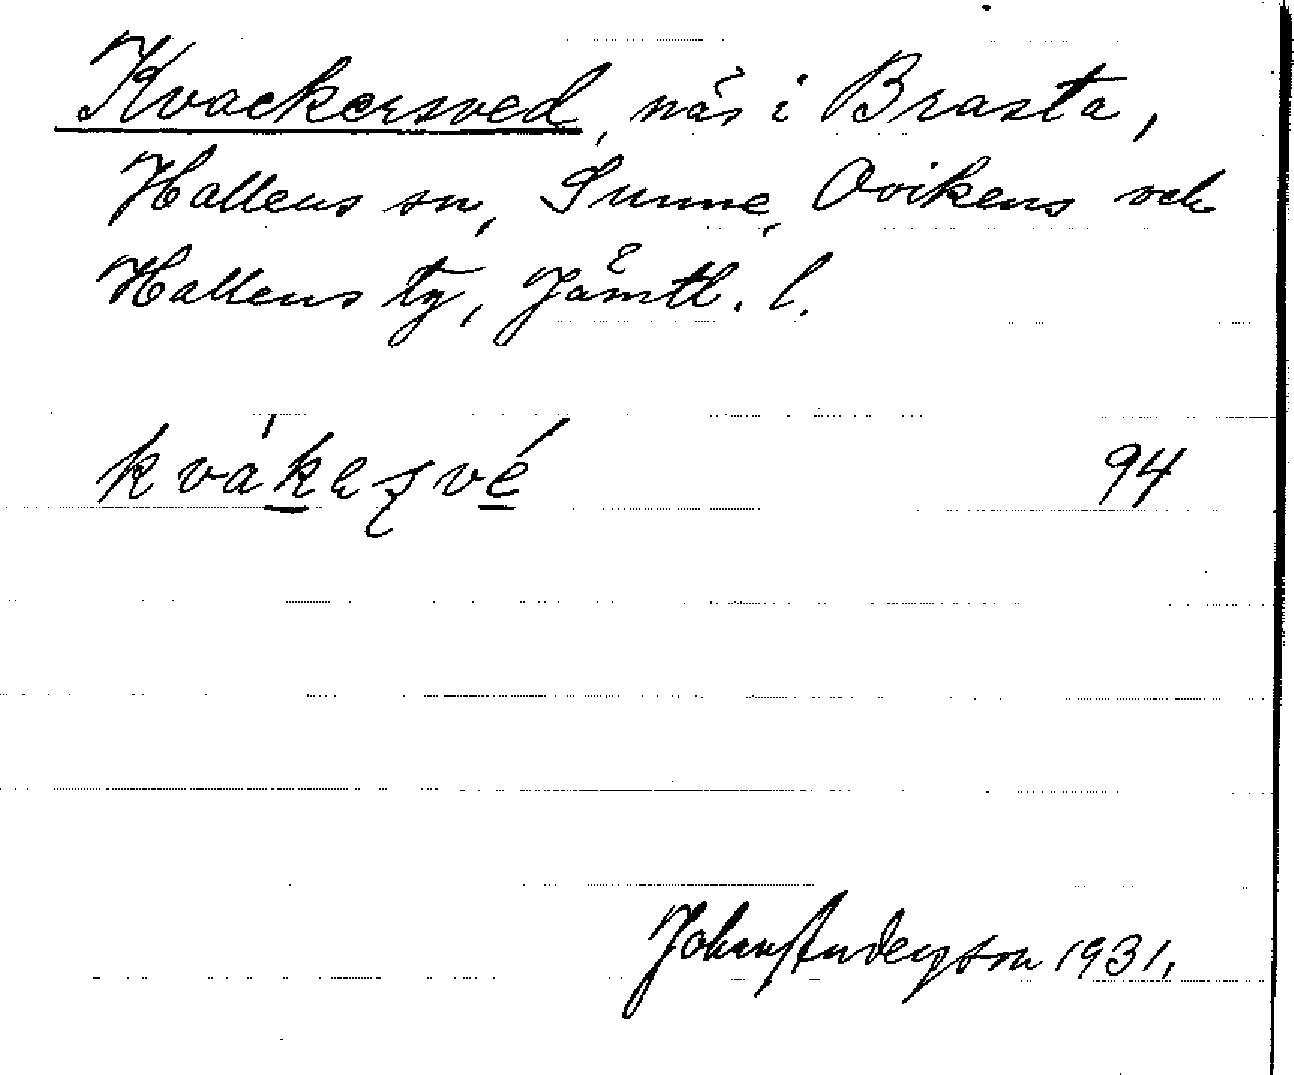 Kvackersved, näs i Brasta,
Hallens sn, Sunne, Ovikens och
Hallens tg, Jämtl. l.
94
Johan Anderson 1931.